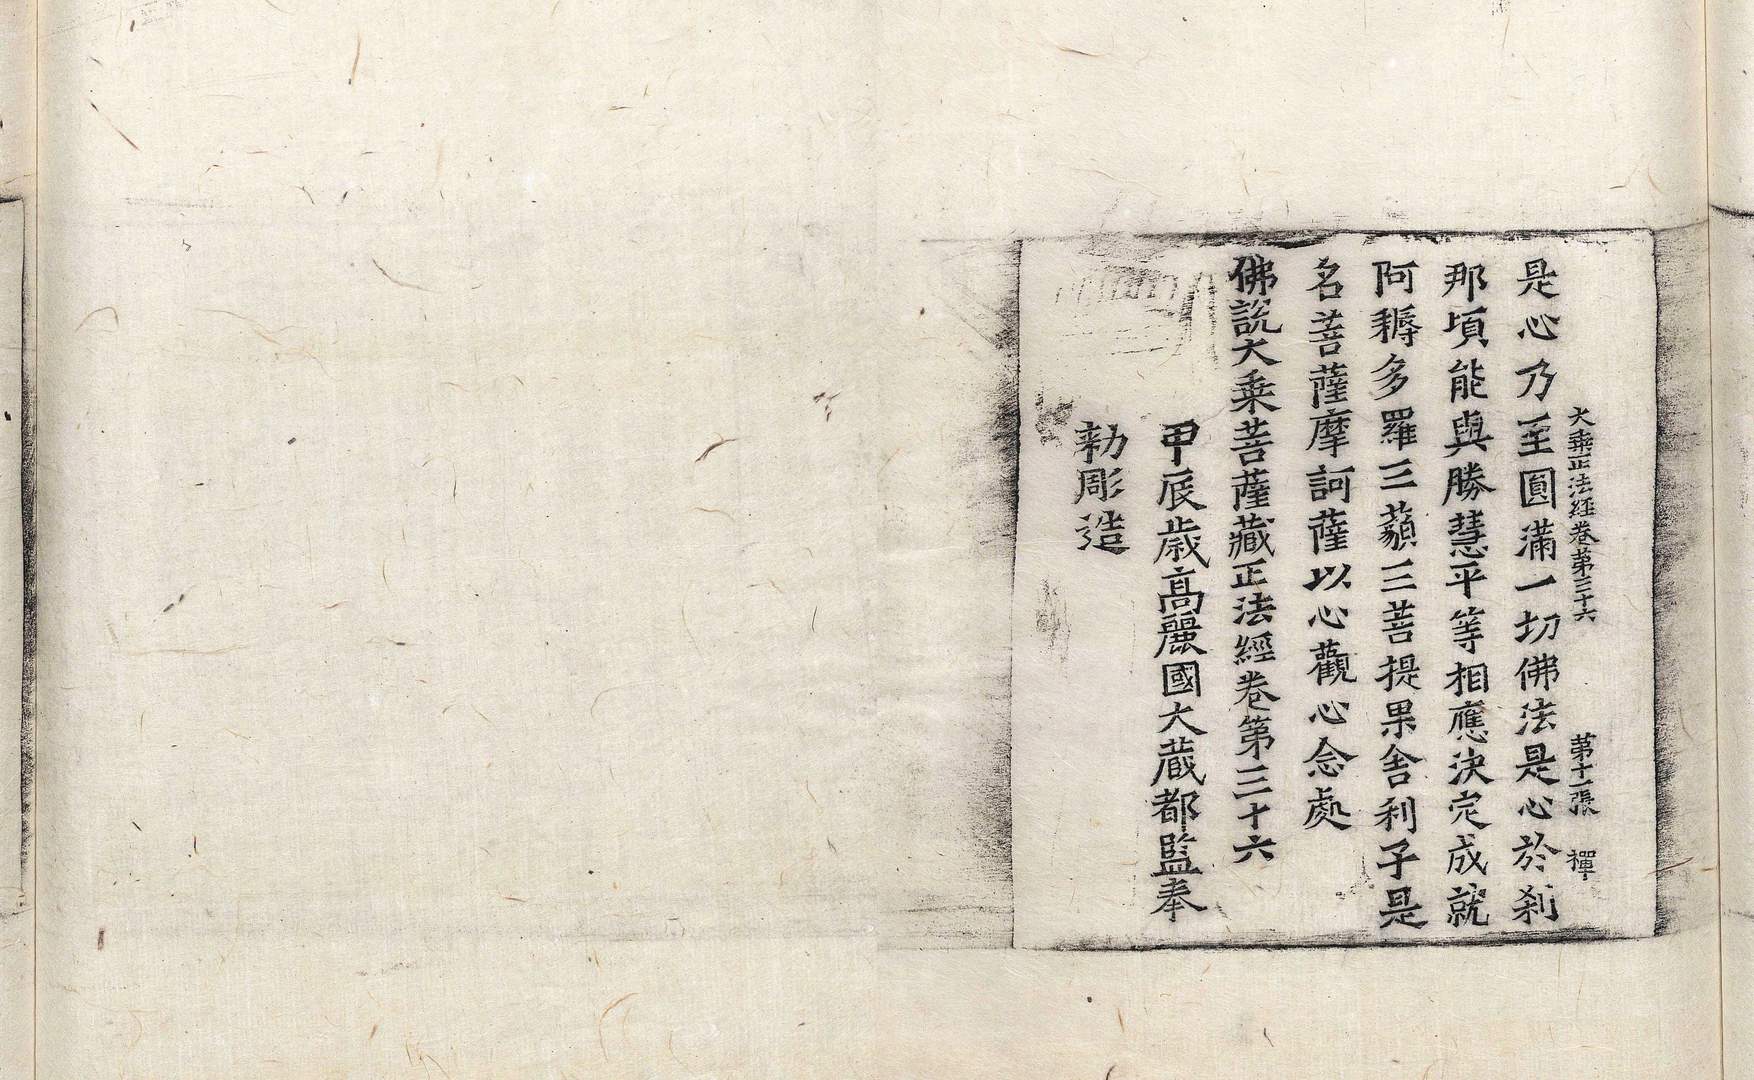 大乗正法經卷第三十六 第十一張 禪
是心乃至圓滿一切佛法是心於刹
那頃能與勝慧平等相應決定成就
阿耨多羅三藐三菩提果舍利子是
名菩薩摩訶薩以心觀心念處
佛說大乗菩薩藏正法經卷第三十六
甲辰歳高麗國大藏都監奉
勑彫造